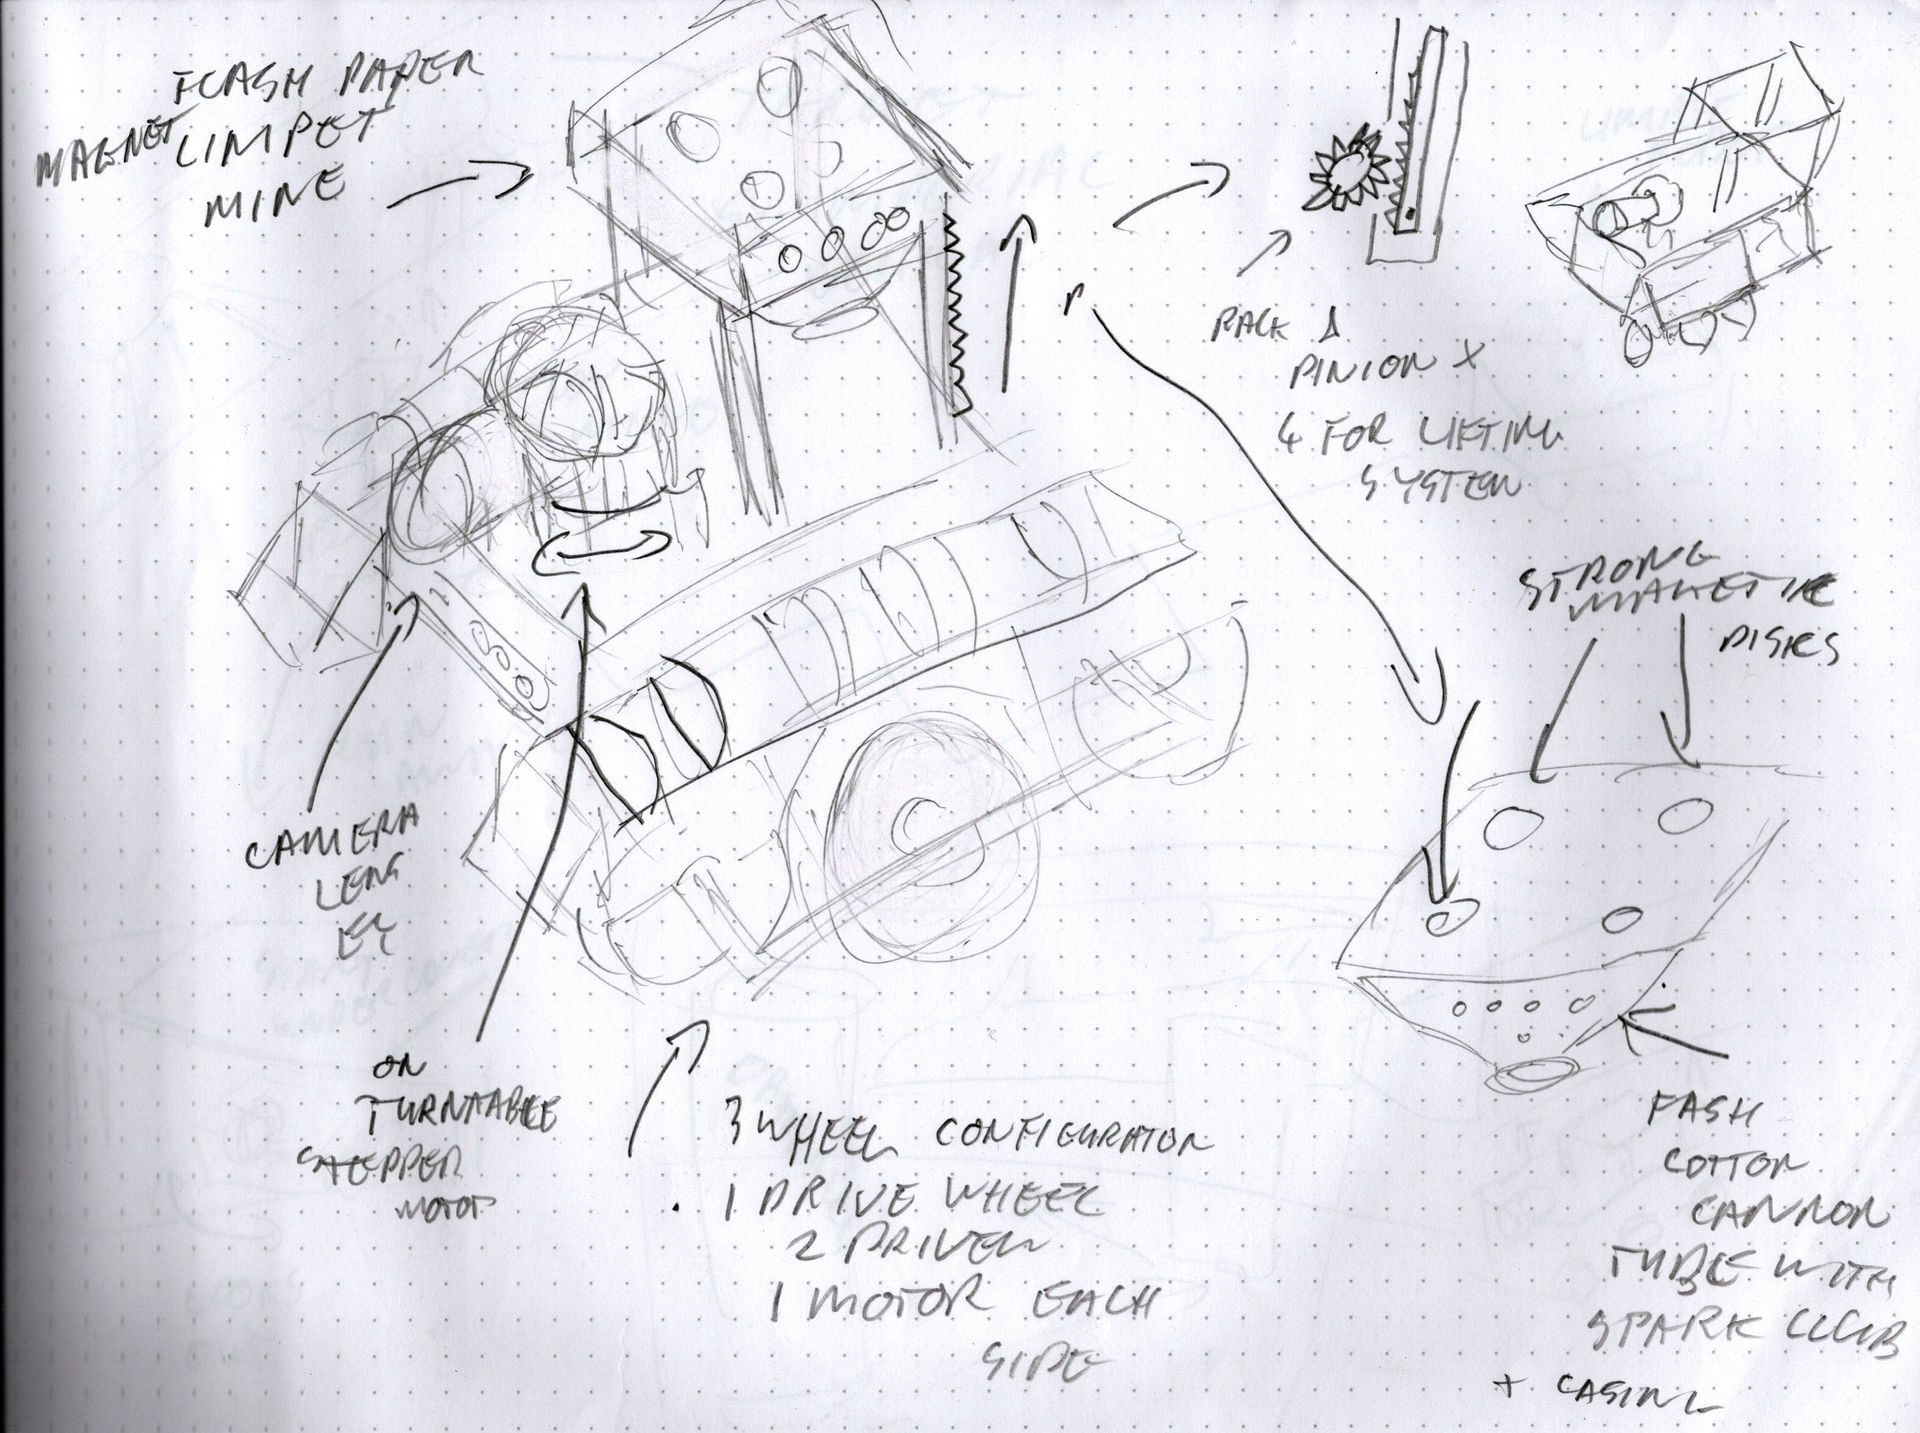 FLASH PAPER
MAGNET LIMPET
MINE
RACK &
PINION X
4 FOR LIFTING
SYSTEM
STRONG
MAGNETIC
DISKS
CAMERA
LENS
ON
TURNTABLE
STEPPER
MOTOR
3 WHEEL CONFIGURATION
1 DRIVE WHEEL
2 DRIVEN
1 MOTOR EACH
SIDE
FASH
COTTON
CANNON
TUBE WITH
SPARK
+ CASING